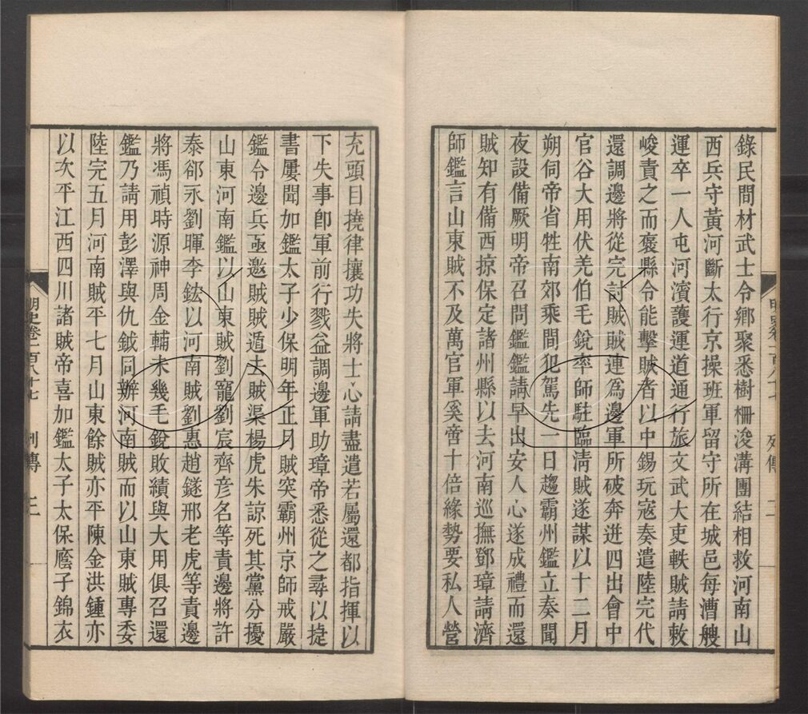 錄民間材武士令鄉聚悉樹柵浚溝團結相救河南山
西兵守黃河斷太行京操班軍留守所在城邑每漕艘
運卒一人屯河濱護運道通行旅文武大吏軼賊請敕
峻責之而褒縣令能擊賊者以中錫玩寇奏遣陸完代
還調邊將從完討賊賊連為邊軍所破奔迸四出會中
官谷大用伏羌伯毛銳率師駐臨清賊遂謀以十二月
朔伺帝省牲南郊乘間犯駕先一日趨霸州鑑立奏聞
夜設備厥明帝召問鑑鑑請早出安人心遂成禮而還
賊知有備西掠保定諸州縣以去河南巡撫鄧璋請濟
師鑑言山東賊不及萬官軍奚啻十倍緣勢要私人營
充頭目撓律攘功失將士心請盡遣若屬還都指揮以
下失事卽軍前行戮益調邊軍助璋帝悉從之尋以捷
書屢聞加鑑太子少保明年正月賊突霸州京師戒嚴
鑑令邊兵亟邀賊賊遁去賊渠楊虎朱諒死其黨分擾
山東河南鑑以山東賊劉寵劉宸齊彦名等責邊將許
泰郤永劉暉李鋐以河南賊劉惠趙鐩邢老虎等責邊
將馮禎時源神周金輔未幾毛銳敗績與大用俱召還
鑑乃請用彭澤與仇鉞同辦河南賊而以山東賊專委
陸完五月河南賊平七月山東餘賊亦平陳金洪鍾亦
以次平江西四川諸賊帝喜加鑑太子太保廕子錦衣
明史卷一百八十七 列傳 二